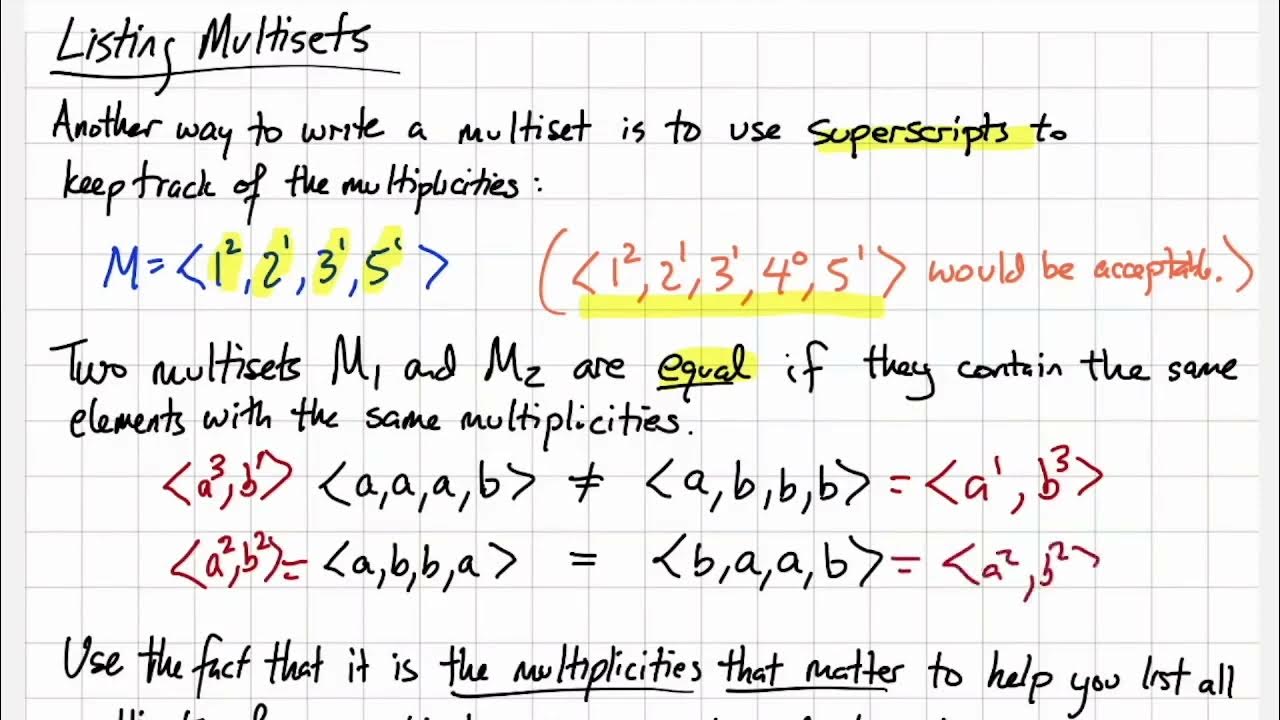 Listing Multisets
Another way to write a multiset is to use superscripts to
keep track of the multiplicities :
M = <1², 2¹, 3¹, 5¹> (<1², 2¹, 3¹, 4⁰, 5¹> would be acceptable.)
Two multisets M₁ and M₂ are equal if they contain the same
elements with the same multiplicities.
<a³, b¹> <a, a, a, b> ≠ <a, b, b, b> = <a¹, b³>
<a², b²> = <a, b, b, a> = <b, a, a, b> = <a², b²>
Use the fact that it is the multiplicities that matter to help you list all